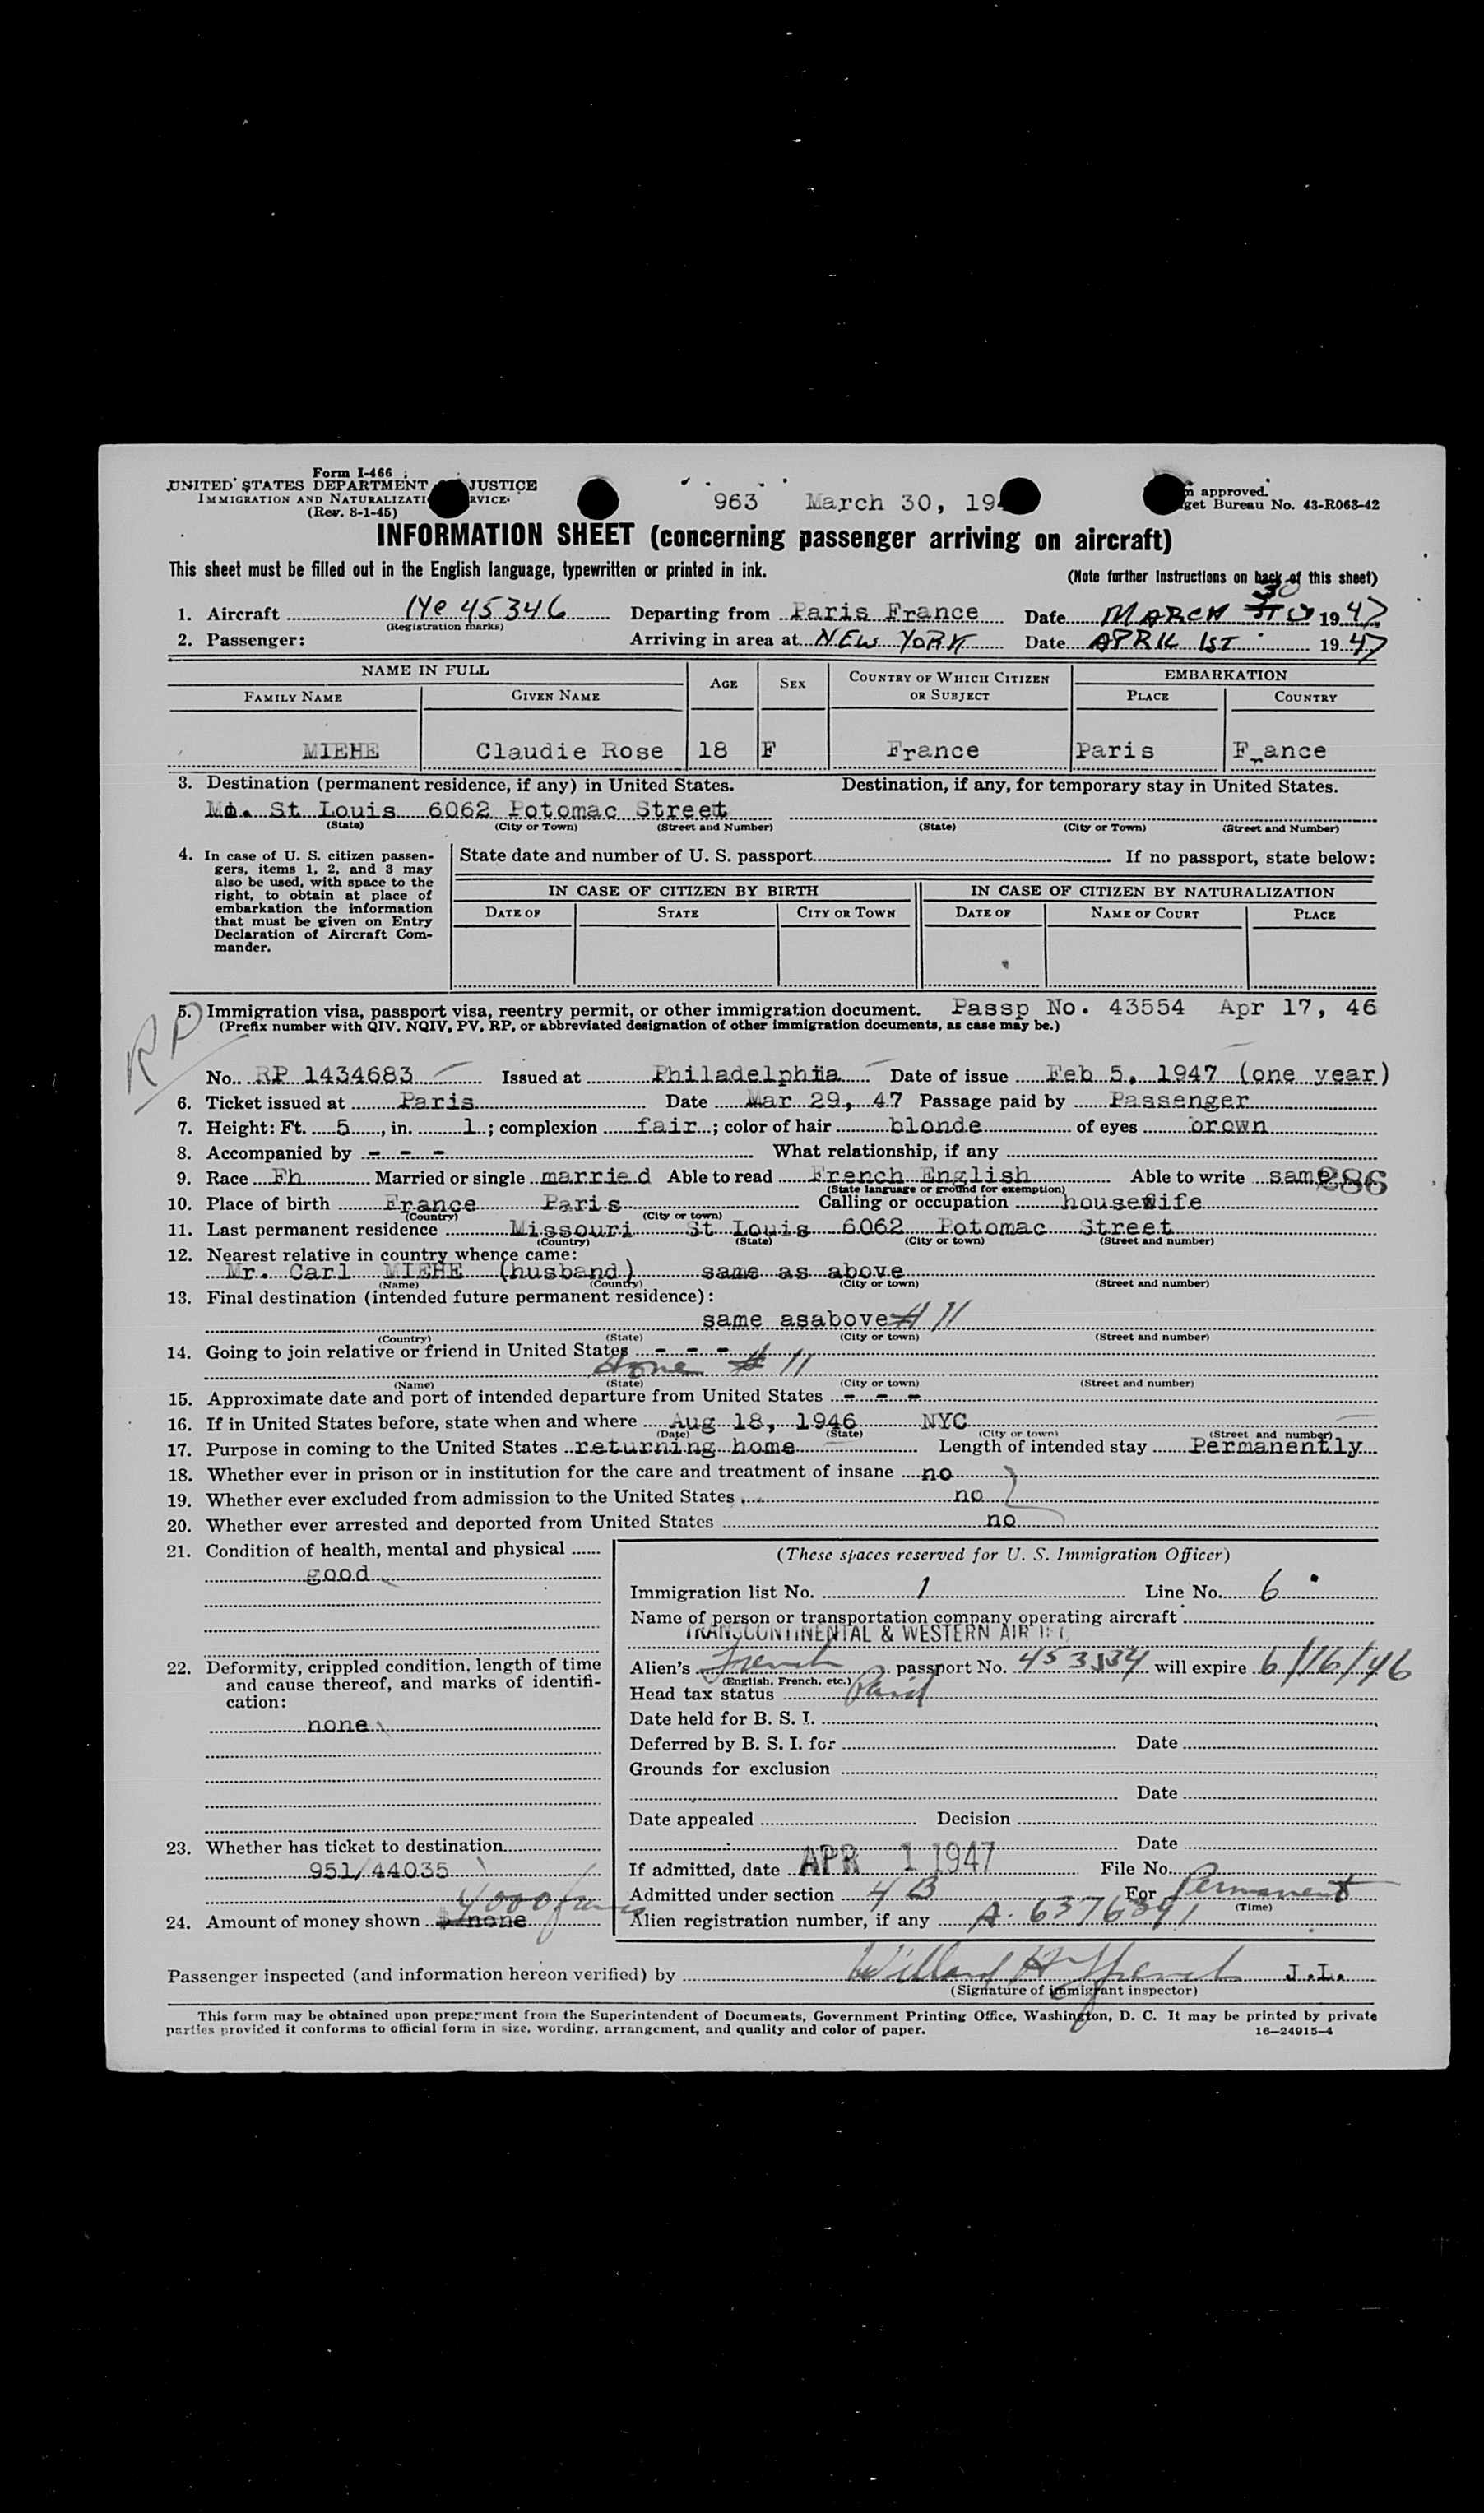 Form I-466
UNITED STATES DEPARTMENT JUSTICE
IMMIGRATION AND NATURALIZATI RVICE
(Rev. 8-1-45)
963 March 30, 194
approved.
get Bureau No. 43-R063-42
INFORMATION SHEET (concerning passenger arriving on aircraft)
This sheet must be filled out in the English language, typewritten or printed in ink.
(Note further instructions on back of this sheet)
1. Aircraft 45346 Departing from Paris France Date MARCH 30 1947
(Registration marks)
2. Passenger: Arriving in area at NEW YORK Date APRIL 1ST 1947
NAME IN FULL AGE SEX COUNTRY OF WHICH CITIZEN OR SUBJECT EMBARKATION
FAMILY NAME GIVEN NAME PLACE COUNTRY
MIEHE Claudie Rose 18 F France Paris F ance
3. Destination (permanent residence, if any) in United States. Destination, if any, for temporary stay in United States.
Mo. St Louis 6062 Potomac Street
(State) (City or Town) (Street and Number) (State) (City or Town) (Street and Number)
4. In case of U. S. citizen passen-
gers, items 1, 2, and 3 may
also be used, with space to the
right, to obtain at place of
embarkation the information
that must be given on Entry
Declaration of Aircraft Com-
mander.
State date and number of U. S. passport If no passport, state below:
IN CASE OF CITIZEN BY BIRTH IN CASE OF CITIZEN BY NATURALIZATION
DATE OF STATE CITY OR TOWN DATE OF NAME OF COURT PLACE
RP
5. Immigration visa, passport visa, reentry permit, or other immigration document. Passp No. 43554 Apr 17, 46
(Prefix number with QIV, NQIV, PV, RP, or abbreviated designation of other immigration documents, as case may be.)
No. RP 1434683 Issued at Philadelphia Date of issue Feb 5, 1947 (one year)
6. Ticket issued at Paris Date Mar 29, 47 Passage paid by Passenger
7. Height: Ft. 5, in. 1; complexion fair; color of hair blonde of eyes brown
8. Accompanied by - - - What relationship, if any
9. Race Fh Married or single married Able to read French English Able to write same
286
(State language or ground for exemption)
10. Place of birth France Paris Calling or occupation housewife
(Country) (City or town)
11. Last permanent residence Missouri St Louis 6062 Potomac Street
(Country) (State) (City or town) (Street and number)
12. Nearest relative in country whence came:
Mr. Carl MIEHE (husband) same as above
(Name) (Country) (City or town) (Street and number)
13. Final destination (intended future permanent residence):
same asabove # 11
(Country) (State) (City or town) (Street and number)
14. Going to join relative or friend in United States - - -
# 11
(Name) (State) (City or town) (Street and number)
15. Approximate date and port of intended departure from United States - - -
16. If in United States before, state when and where Aug 18, 1946 NYC
(Date) (State) (City or town) (Street and number)
17. Purpose in coming to the United States returning home Length of intended stay Permanently
18. Whether ever in prison or in institution for the care and treatment of insane no
19. Whether ever excluded from admission to the United States no
20. Whether ever arrested and deported from United States no
21. Condition of health, mental and physical
good
22. Deformity, crippled condition, length of time
and cause thereof, and marks of identifi-
cation:
none
23. Whether has ticket to destination
951/44035
4000 francs
24. Amount of money shown $ none
(These spaces reserved for U. S. Immigration Officer)
Immigration list No. 1 Line No. 6
Name of person or transportation company operating aircraft
TRANSCONTINENTAL & WESTERN AIR
Alien's French passport No. will expire 6/16/46
(English, French, etc.)
Head tax status Paid
Date held for B. S. I.
Deferred by B. S. I. for Date
Grounds for exclusion
Date
Date appealed Decision
Date
If admitted, date APR 1 1947 File No.
Admitted under section 4 B For Permanent
(Time)
Alien registration number, if any A. 6376891
Passenger inspected (and information hereon verified) by Willard H French J.L.
(Signature of immigrant inspector)
This form may be obtained upon prepayment from the Superintendent of Documents, Government Printing Office, Washington, D. C. It may be printed by private
parties provided it conforms to official form in size, wording, arrangement, and quality and color of paper. 16—24915-4